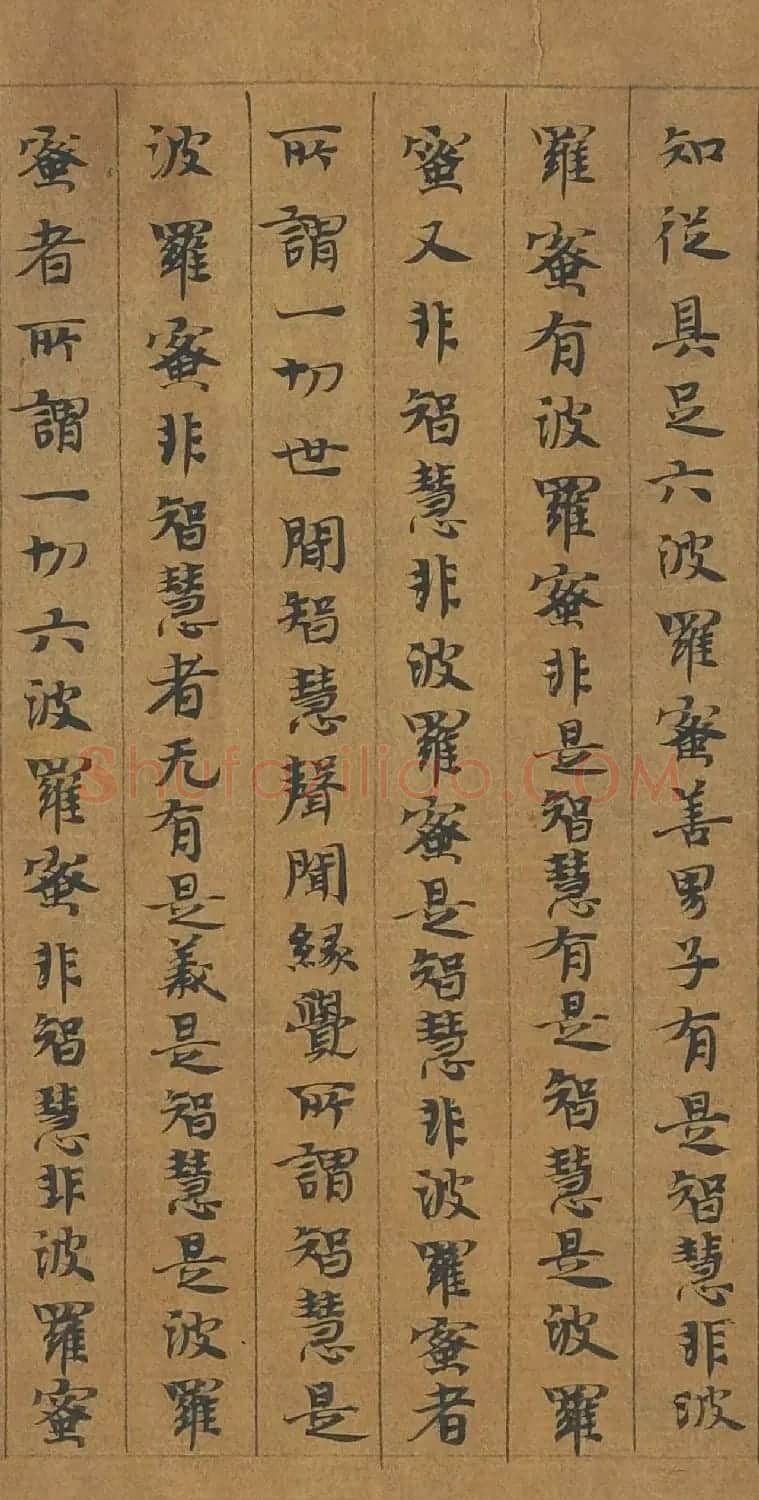 知從具足六波羅蜜善男子有是智慧非波
羅蜜有波羅蜜非是智慧有是智慧是波羅
蜜又非智慧非波羅蜜是智慧非波羅蜜者
所謂一切世間智慧聲聞緣覺所謂智慧是
波羅蜜非智慧者无有是義是智慧是波羅
蜜者所謂一切六波羅蜜非智慧非波羅蜜